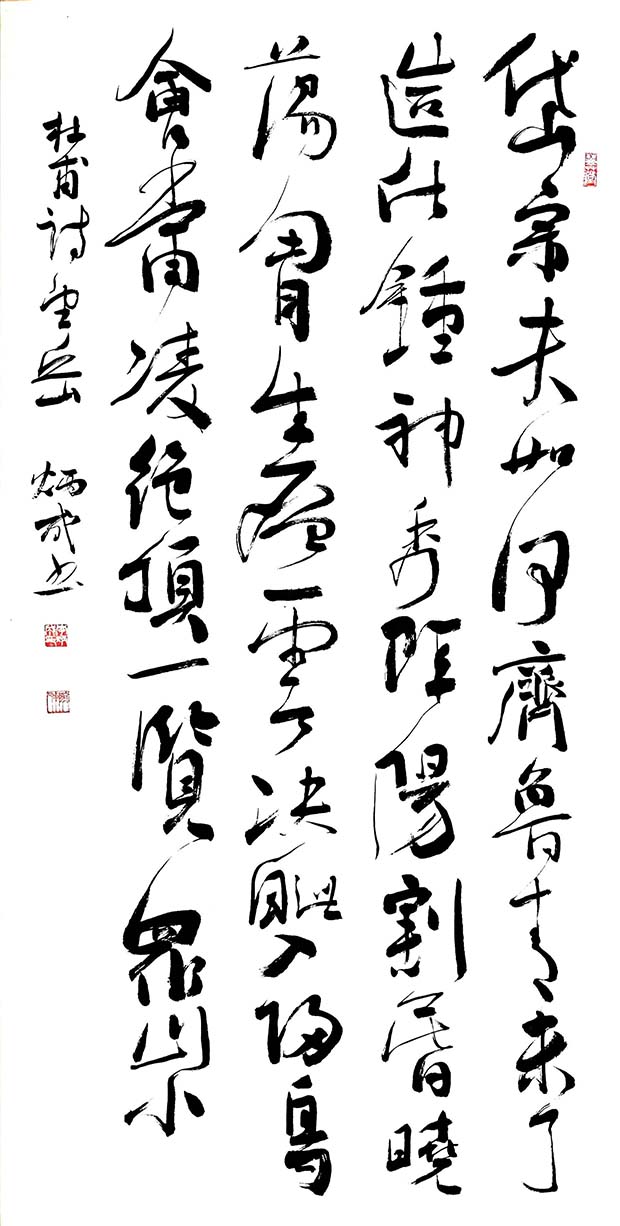 岱宗夫如何齊魯青未了
造化鍾神秀陰陽割昏曉
蕩胷生層雲决眥入歸鳥
會當凌絕頂一覽眾山小
杜甫詩望岳 炳成书